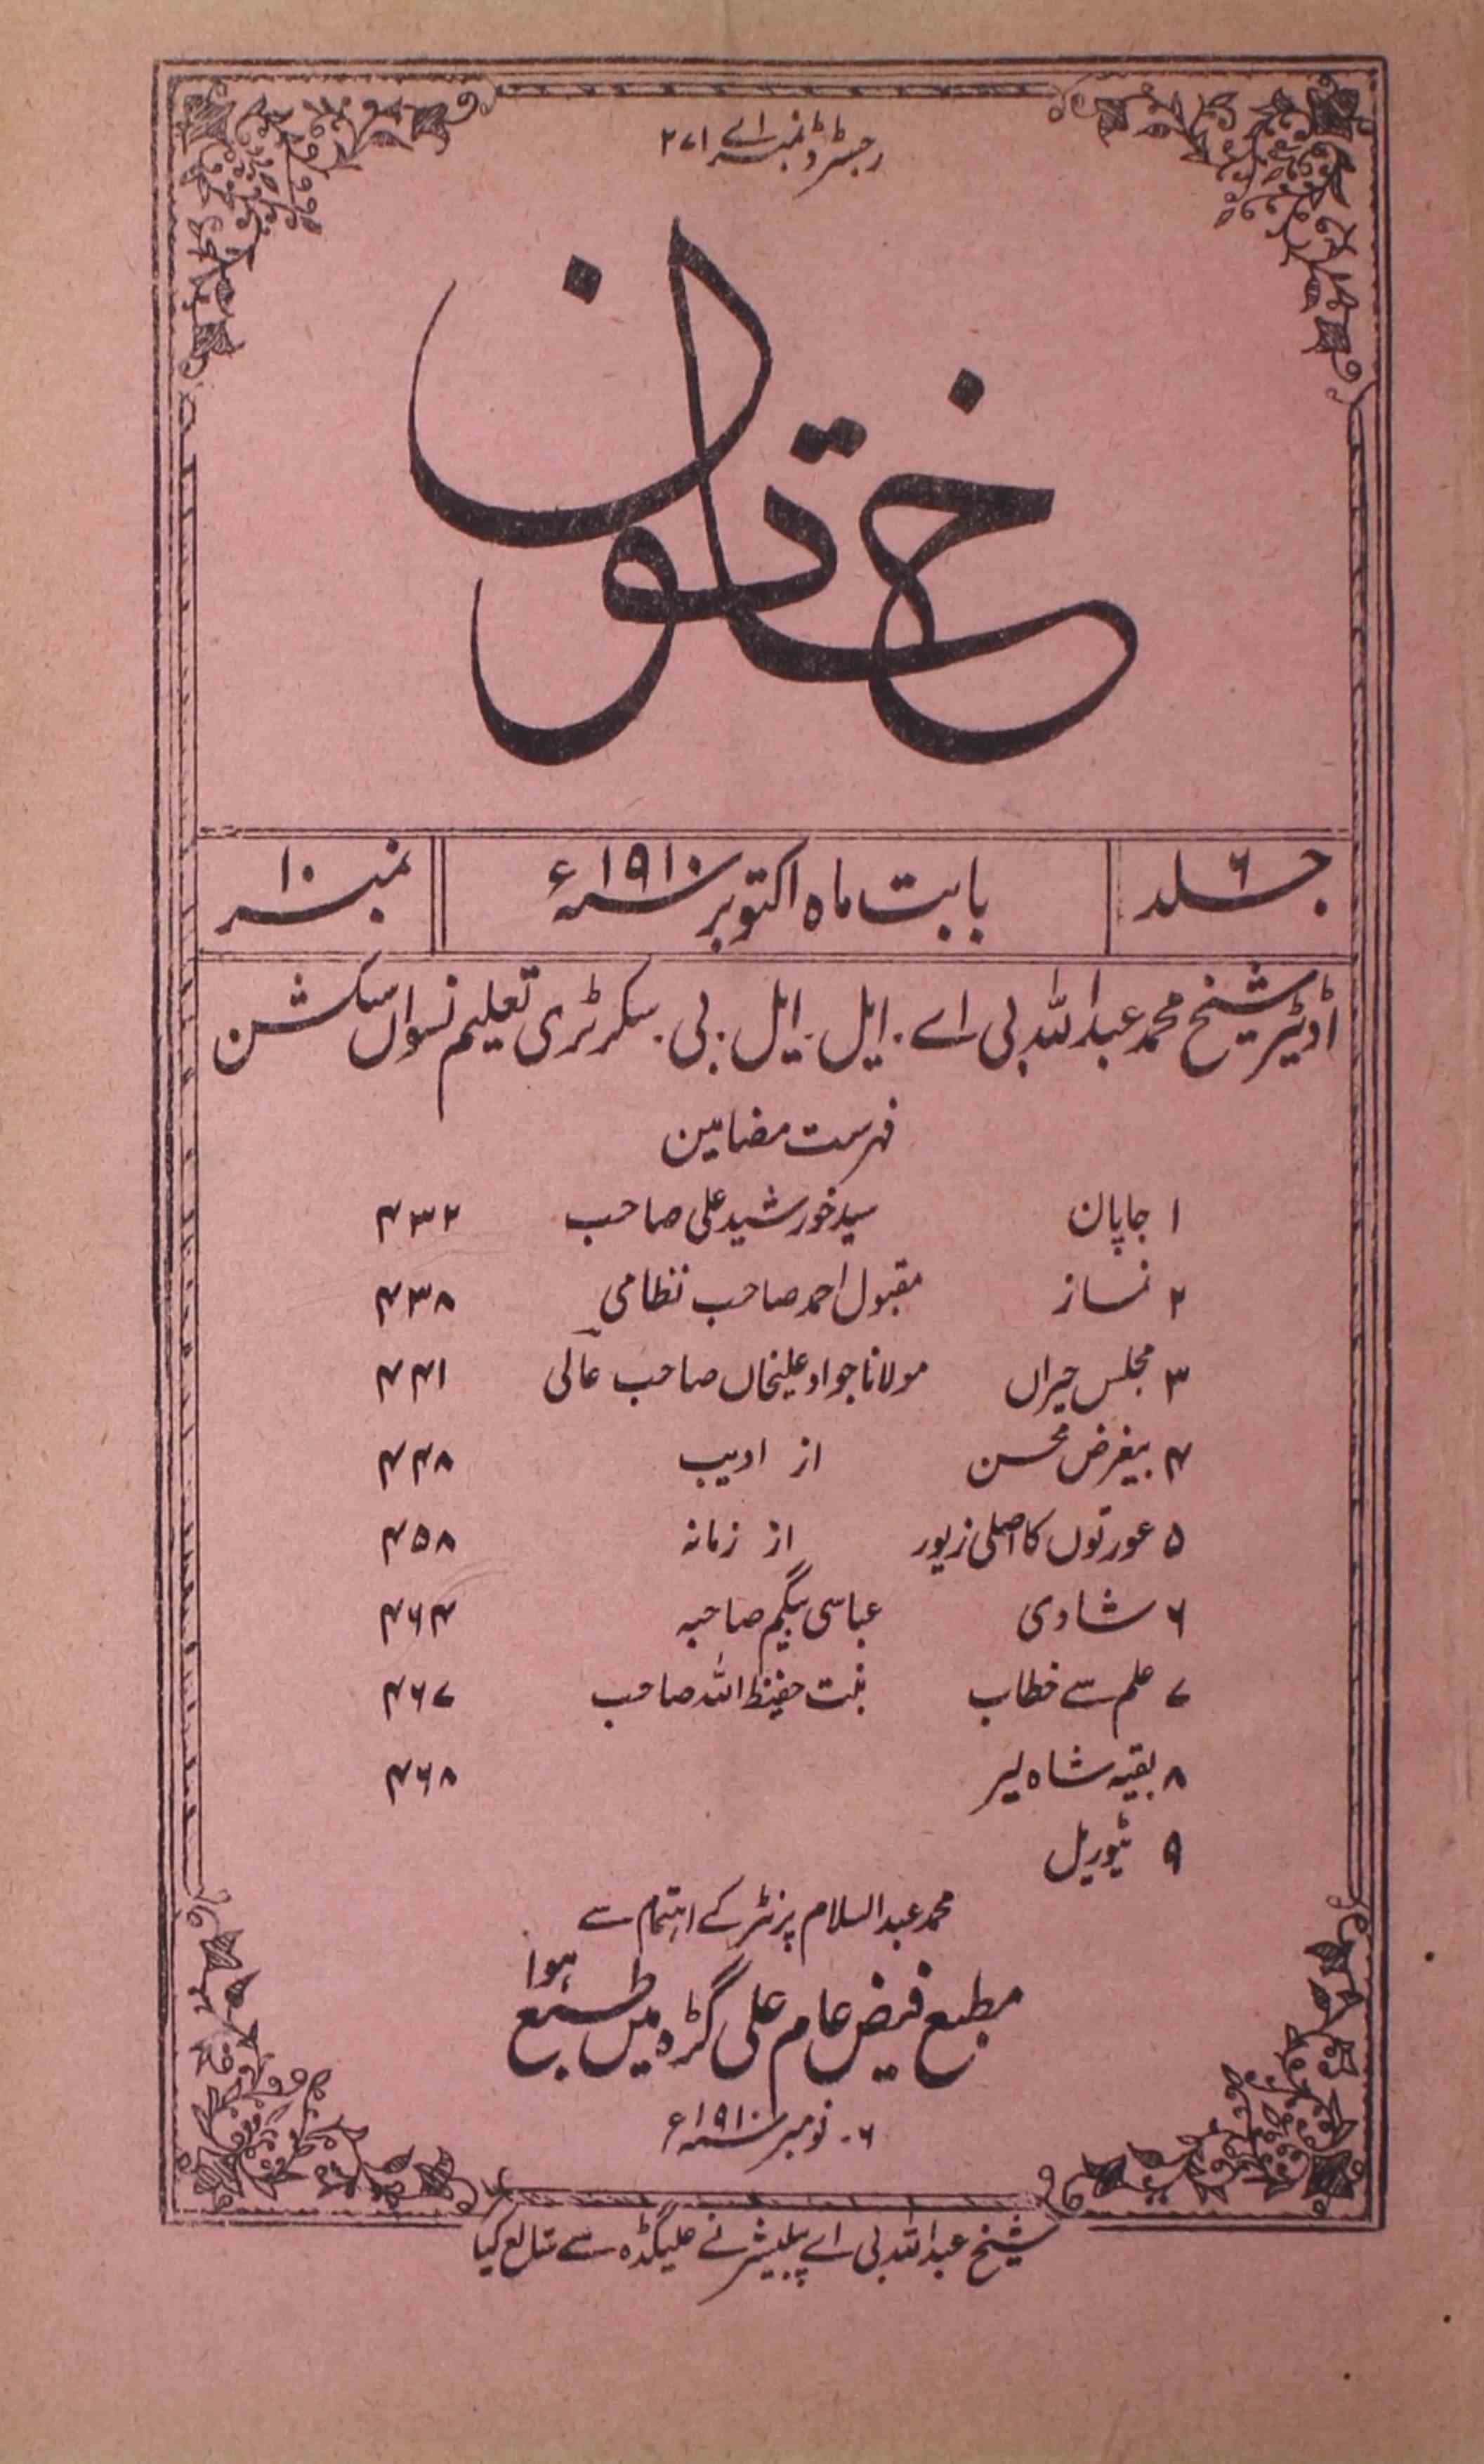 رجسٹرڈ نمبر اے ۲۷۱
خاتون
جلد ۶
بابت ماہ اکتوبر سنہ ۱۹۱۰ء
نمبر ۱۰
اڈیٹر شیخ محمد عبداللہ بی اے . ایل . ایل . بی . سکرٹری تعلیم نسواں سکشن
فہرست مضامین
۱ جاپان سید خورشید علی صاحب ۴۳۲
۲ نماز مقبول احمد صاحب نظامی ۴۳۸
۳ مجلس حیراں مولانا جواد علیخاں صاحب عالی ۴۴۱
۴ بیغرض محسن از ادیب ۴۴۸
۵ عورتوں کا اصلی زیور از زمانہ ۴۵۸
۶ شادی عباسی بیگم صاحبہ ۴۶۴
۷ علم سے خطاب بنت حفیظ اللہ صاحب ۴۶۷
۸ بقیہ شاہ لیر ۴۶۸
۹ ٹیوریل
محمد عبدالسلام پرنٹر کے اہتمام سے
مطبع فیض عام علی گڑہ میں طبع ہوا
۶۔ نومبر سنہ ۱۹۱۰ء
شیخ عبداللہ بی اے پبلیشر نے علیگڈہ سے شالع کیا